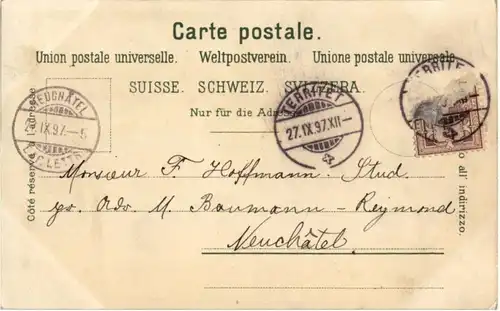 Carte postale.
Union postale universelle. Weltpostverein. Unione postale universale
SUISSE. SCHWEIZ. SVIZZERA.
Nur für die Adresse
Côté réservé
adresse
o all' indirizzo.
NEUCHÂTEL
27.IX.97.-5
TERRITET
27.IX.97.XII-
TERRITET
Monsieur F. Hoffmann-Stud.
pr. Adr. M. Baumann-Reymond
Neuchâtel.